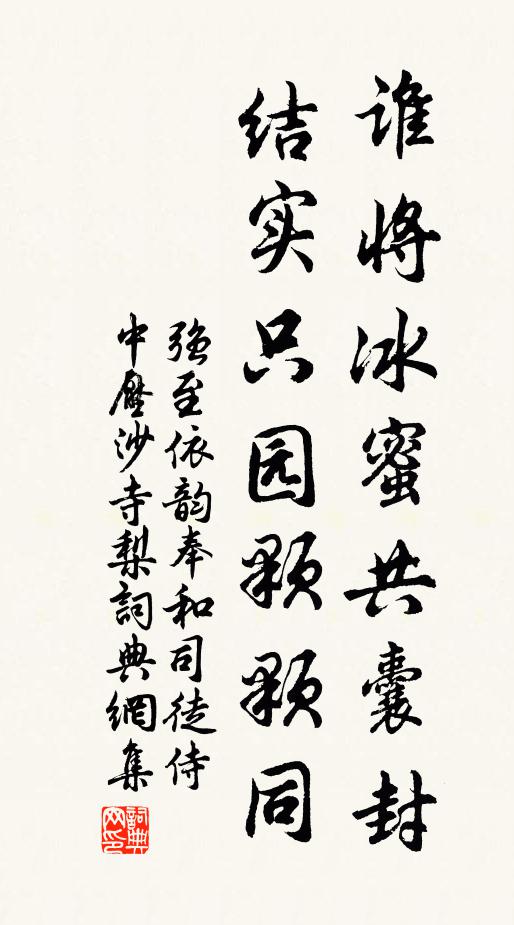 谁将冰蜜共囊封
结实只园颗颗同
強至依韵奉和司徒侍
中壓沙寺梨詞典網集
詞典网印